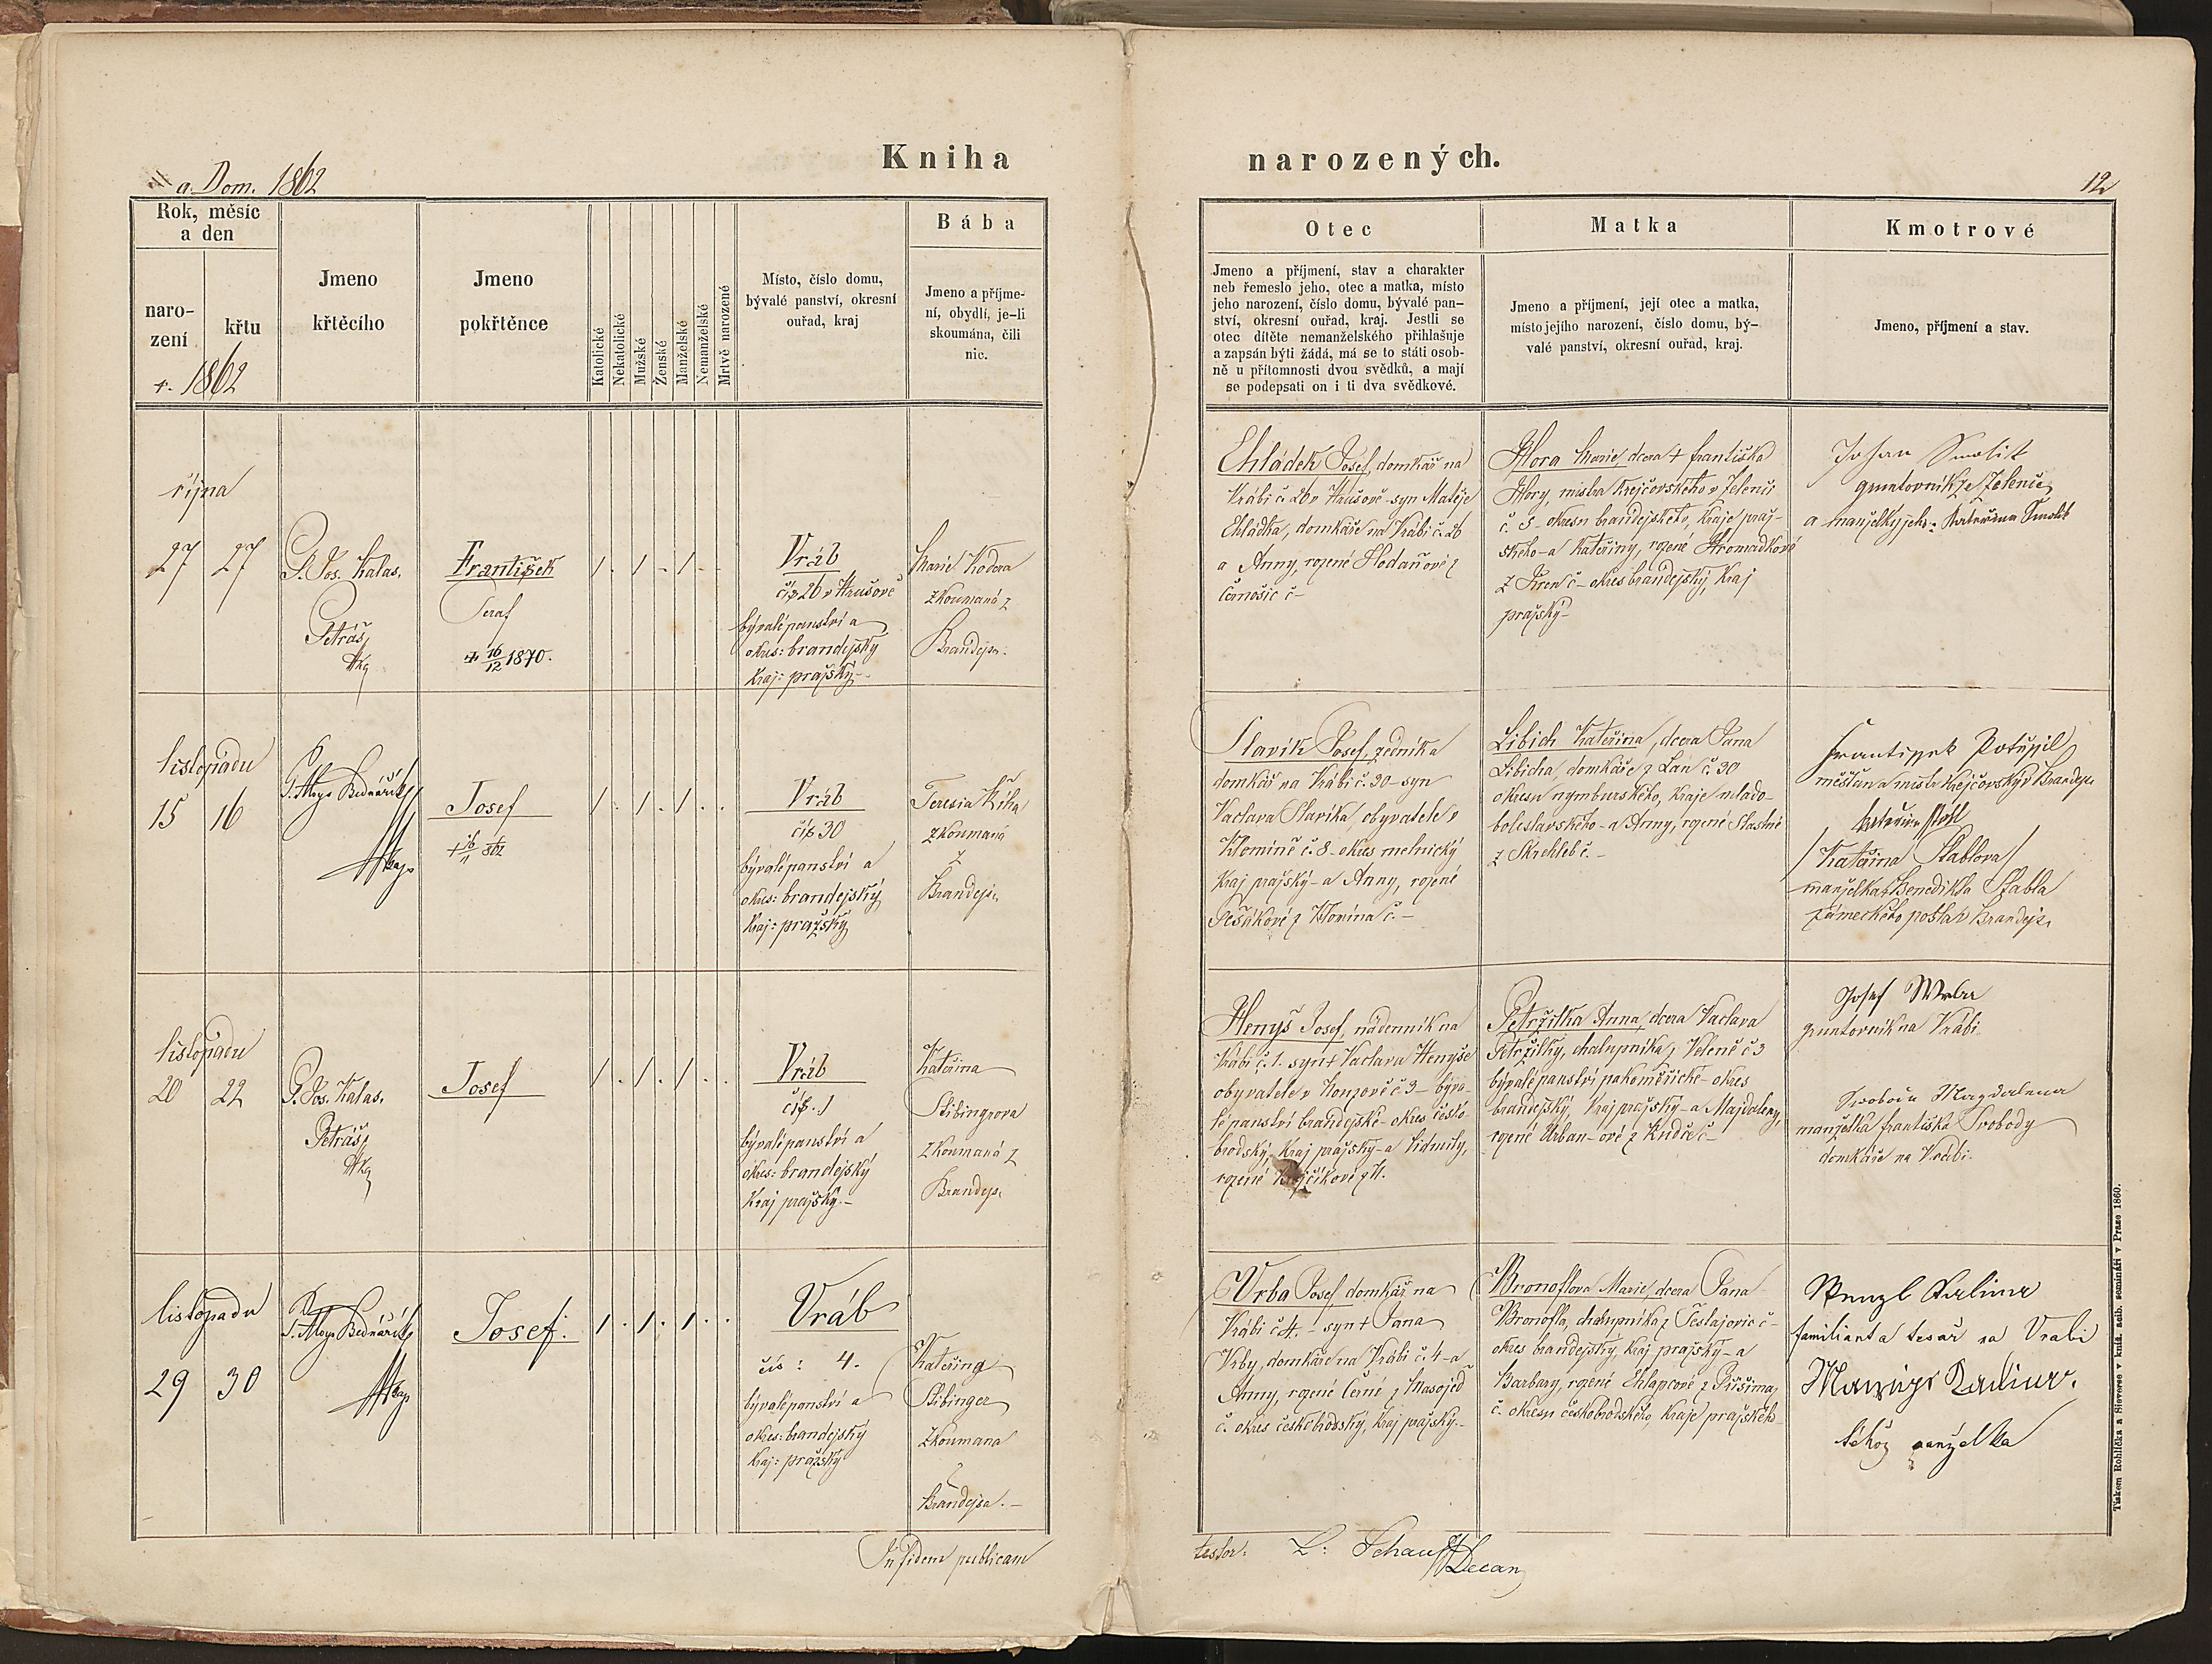 Kniha narozených.
a. Dom. 1862
12
Rok, měsíc
a den
naro-
zení
křtu
r. 1862
Jmeno
křtěcího
Jmeno
pokřtěnce
Katolické
Nekatolické
Mužské
Ženské
Manželské
Nemanželské
Mrtvě narozené
Místo, číslo domu,
bývalé panství, okresní
ouřad, kraj
Bába
Jmeno a příjme-
ní, obydlí, je-li
skoumána, čili
nic.
Otec
Jmeno a příjmení, stav a charakter
neb řemeslo jeho, otec a matka, místo
jeho narození, číslo domu, bývalé pan-
ství, okresní ouřad, kraj. Jestli se
otec dítěte nemanželského přihlašuje
a zapsán býti žádá, má se to státi osob-
ně u přítomnosti dvou svědků, a mají
se podepsati on i ti dva svědkové.
Matka
Jmeno a příjmení, její otec a matka,
místo jejího narození, číslo domu, bý-
valé panství, okresní ouřad, kraj.
Kmotrové
Jmeno, příjmení a stav.
října
27 27
P. Jos. Kalas.
Petráš
František
Seraf
+ 16/12 1870.
/ . / . / . .
Vráb
čís 26 v Hrušově
bývalé panství a
okres: brandejský
Kraj: pražský
Marie Kodera
zkoumaná z
Brandejsa.
Chládek Josef, domkář na
Vrábí č. 26 v Hrušově - syn Matěje
Chládka, domkáře na Vrábí č. 26
a Anny, rozené Hodaňové z
č -
Hora Marie, dcera + Františka
Hory, mistra Krejčovského v Zelenči
č. 5 - okresu brandejského, Kraje praž-
ského - a Kateřiny, rozené Hromádkové
z č - okres brandejský, Kraj
pražský -
Johan Smolik
gruntovník ze Zelenče
a manželky jeho: Kateřina Smolik
listopadu
15 16
P. Aloys Bednařík
Josef
+ 16/11 862
/ . / . / . .
Vráb
čís 30
bývalé panství a
okres: brandejský
Kraj: pražský
Teresia Říha
zkoumaná
z
Brandejs.
Slavík Josef, zedník a
domkář na Vrábí č. 30 - syn
Václava Slavíka, obyvatele v
Klomíně č. 8 - okres melnický
Kraj pražský - a Anny, rozené
z Klomína č. -
Libich Kateřina, dcera Jana
Libicha, domkáře z Lan č. 30
okresu nymburského, Kraje mlado-
boleslavského - a Anny, rozené Slastné
z č. -
Frantissek Pospjssil
měšťan a mistr Krejčovský v Brandejs.
/Kateřina Stablova/
manželka Benedikta Stabla
zámeckého posla v Brandejs.
listopadu
20 22
P. Jos. Kalas.
Petráš
Josef
/ . / . / . .
Vráb
čís. 1
bývalé panství a
okres: brandejský
Kraj pražský. -
Kateřina
Stibingrova
zkoumaná z
Brandejs.
Henyš Josef, nádenník na
Vrábí č. 1. syn + Václava Henyše
obyvatele v Konzově č 3 - býva-
lé panství brandejské - okres česko-
brodský, Kraj pražský - a Lidmily,
rozené
Petržilka Anna, dcera Václava
Petržilky, chalupníka z Veleně č 3
bývalé panství pakoměřické - okres
brandejský, Kraj pražský - a Majdaleny,
rozené Urban-ové z č -
Josef Wrba
gruntovník na Vrábí
Svoboda Magdalena
manželka Františka Svobody
domkáře na Vrábí.
listopadu
29 30
P. Aloys Bednařík
Josef.
/ . / . / . .
Vráb
čís: 4.
bývalé panství a
okres: brandejský
Kraj: pražský
Kateřina
Stibinger
zkoumana
z
Brandejsa. -
Vrba Josef, domkář na
Vrábí č 4. - syn + Jana
Vrby, domkáře na Vrábí č. 4 - a
Anny, rozené Černé z Masojed
č. okres českobrodský, Kraj pražský. -
Bronoflova Marie, dcera Jana
Bronofla, chalupníka z č -
okres brandejský, Kraj pražský - a
Barbary, rozené Chlapcové z
č. okresu českobrodského Kraje pražského
Wenzl Kalina
familiant a tesař na Vrabi
Kalina.
téhož manželka
In fidem publicam testor: L: Schauff Decan
Tiskem Rohlíčka a Sieverse v kníž. arcib. semináři v Praze 1860.